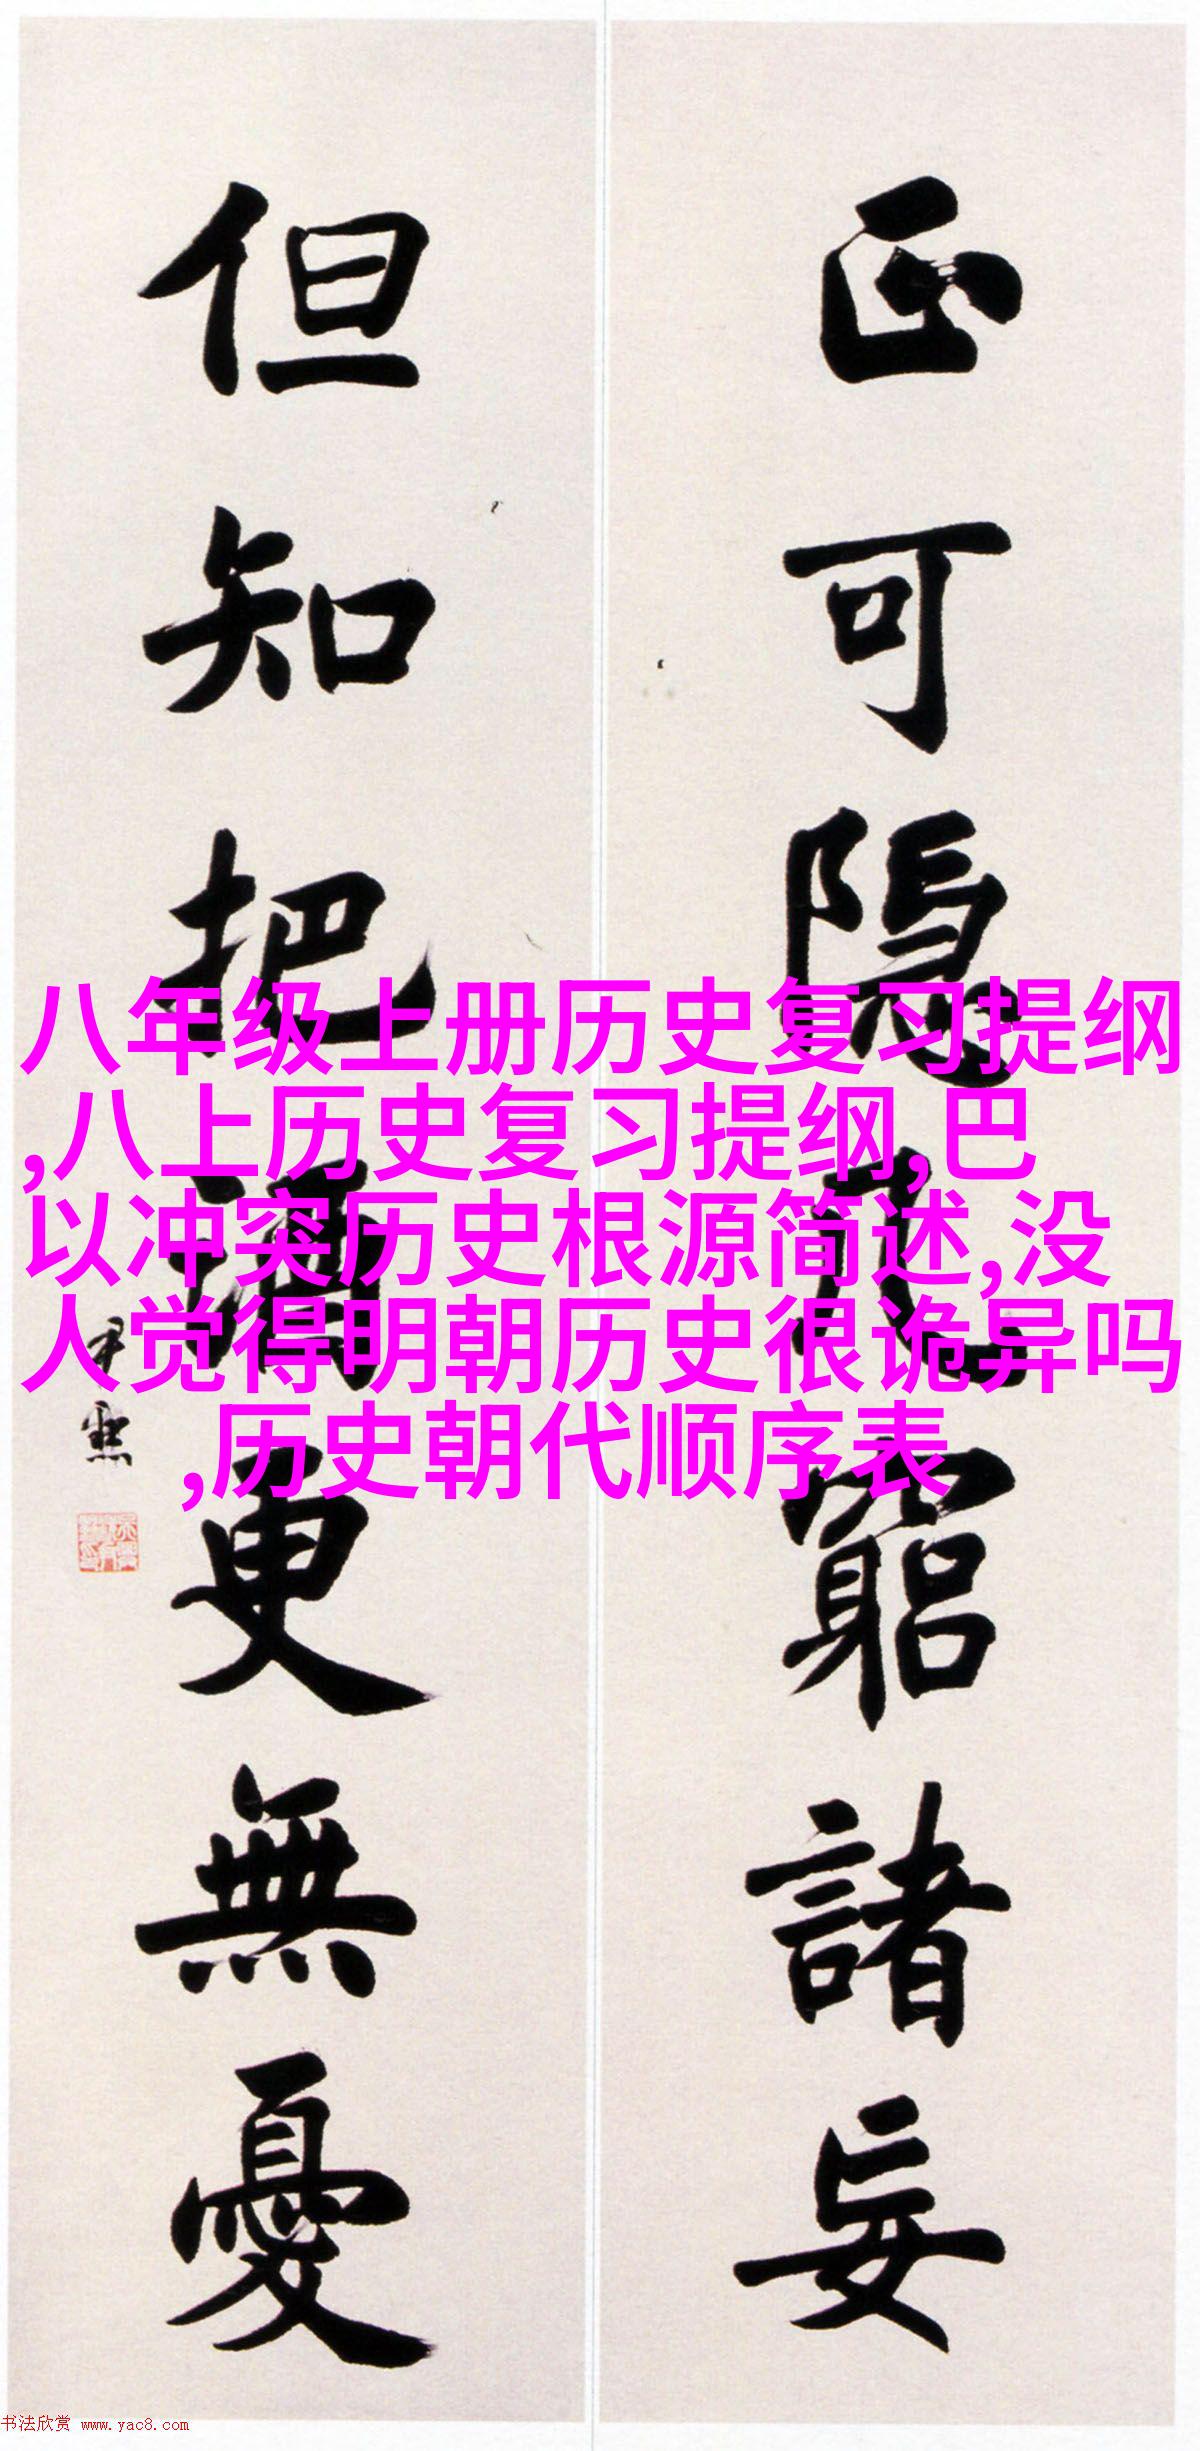 正可隱几窮諸妄
但知把酒更無憂
尹默
八年级上册历史复习提纲
,八上历史复习提纲,巴
以冲突历史根源简述,没
人觉得明朝历史很诡异吗
,历史朝代顺序表
书法欣赏 www.yac8.com